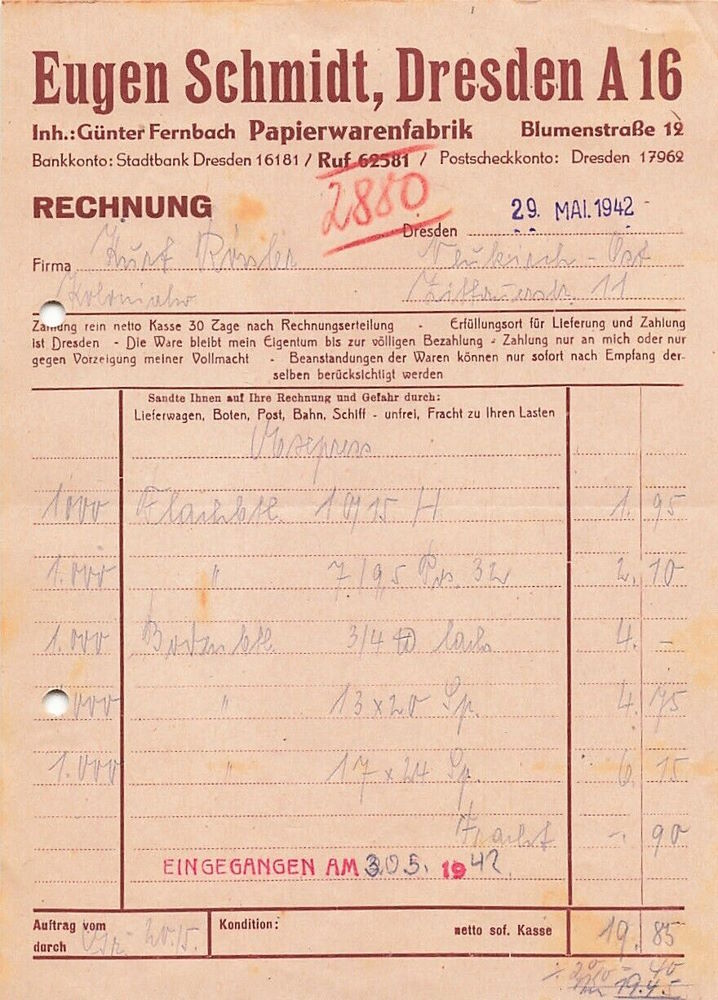 Eugen Schmidt, Dresden A 16
Inh.: Günter Fernbach Papierwarenfabrik Blumenstraße 12
Bankkonto: Stadtbank Dresden 16181 / Ruf 62581 / Postscheckkonto: Dresden 17962
2880
RECHNUNG
Dresden 29. MAI. 1942
Firma Kurt Rössler Neukirch - Ost
Kolonialw Zittauerstr. 11
Zahlung rein netto Kasse 30 Tage nach Rechnungserteilung - Erfüllungsort für Lieferung und Zahlung
ist Dresden - Die Ware bleibt mein Eigentum bis zur völligen Bezahlung - Zahlung nur an mich oder nur
gegen Vorzeigung meiner Vollmacht - Beanstandungen der Waren können nur sofort nach Empfang der-
selben berücksichtigt werden
Sandte Ihnen auf Ihre Rechnung und Gefahr durch:
Lieferwagen, Boten, Post, Bahn, Schiff - unfrei, Fracht zu Ihren Lasten
1000 Flachbtl. 10/15 H 1. 95
1.000 " 7/9,5 32 2. 10
1.000 Bodenbtl. 3/4 4. -
000 " 13 x 20 Sp. 4. 75
1.000 " 17 x 24 Sp. 6. 15
Fracht -. 90
EINGEGANGEN AM 30 5. 1942
Auftrag vom 20./5. Kondition: netto sof. Kasse 19. 85
durch
- 40
19.45